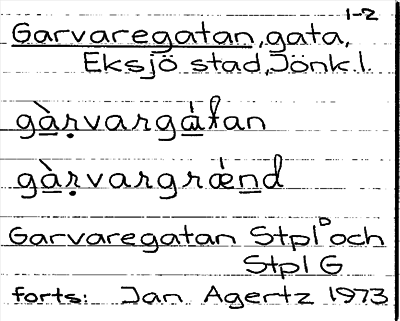 1-2
Garvaregatan, gata,
Eksjö stad, Jönk.l.
gàṛvargátan
gàṛvargrǽnd
Garvaregatan Stpl° och
Stpl G
forts: Jan Agertz 1973